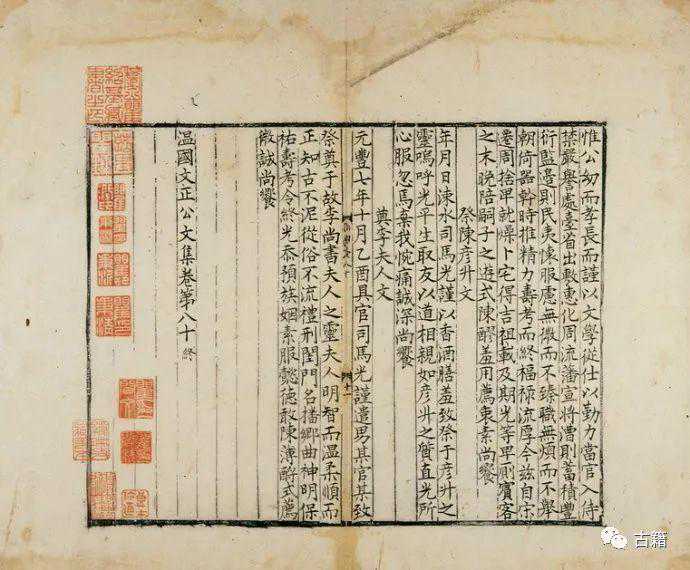 惟公幼而孝長而謹以文學從仕以勤力當官入侍
禁嚴譽處臺省出敷惠化周流藩宣將漕則蓄積豐
衍監邊則民夷懷服慮無微而不臻職無煩而不舉
朝倚器幹時推精力壽考而終福祿流厚今茲自宋
遷周捨湿就燥卜宅得吉祖載及期光等早則賓客
之末晚陪嗣子之遊式陳醪羞用薦衷素尚饗
祭陳彥升文
年月日涑水司馬光謹以香酒膳羞致祭于彥升之
靈嗚呼光平生取友以道相親如彥升之質直光所
心服忽焉棄我惋痛誠深尚饗
奠李夫人文
元豐七年十月乙酉具官司馬光謹遣男具官某致
祭奠于故李尚書夫人之靈夫人明智而溫柔順而
正知古不泥從俗不流禮刑閨門名播鄉曲神明保
祐壽考令終光忝預族姻素服懿德敢陳薄酹式薦
微誠尚饗
溫國文正公文集卷第八十 終
古籍